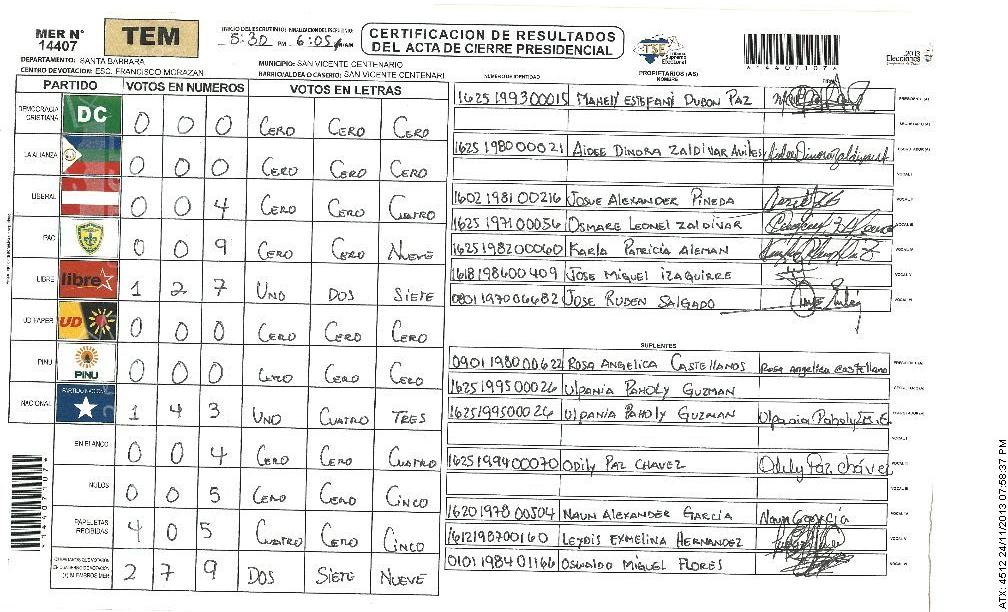 MER N° 14407
TEM
INICIO DEL ESCRUTINIO: FINALIZACION DEL ESCRUTINIO:
5:30 PM 6:05
CERTIFICACION DE RESULTADOS
DEL ACTA DE CIERRE PRESIDENCIAL
TSE Tribunal Supremo Electoral
*1440710?*
2013 Elecciones
DEPARTAMENTO: SANTA BARBARA
MUNICIPIO: SAN VICENTE CENTENARIO
CENTRO DE VOTACION: ESC. FRANCISCO MORAZAN
BARRIO/ALDEA O CASERIO: SAN VICENTE CENTENARI
PARTIDO VOTOS EN NUMEROS VOTOS EN LETRAS
DEMOCRACIA CRISTIANA DC 0 0 0 CERO CERO CERO
LA ALIANZA 0 0 0 CERO CERO CERO
LIBERAL 0 0 4 CERO CERO CUATRO
PAC 0 0 9 CERO CERO NUEVE
LIBRE libre 1 2 7 UNO DOS SIETE
UD FAPER UD 0 0 0 CERO CERO CERO
PINU PINU 0 0 0 CERO CERO CERO
NACIONAL 1 4 3 UNO CUATRO TRES
EN BLANCO 0 0 4 CERO CERO CUATRO
NULOS 0 0 5 CERO CERO CINCO
PAPELETAS RECIBIDAS 4 0 5 CUATRO CERO CINCO
2 7 9 DOS SIETE NUEVE
NUMERO DE IDENTIDAD PROPIETARIOS (AS) NOMBRE FIRMA
1625199300015 MAHELY ESTEFANI DUBON PAZ PRESIDENTE (A)
SECRETARIO (A)
1625198000021 AIDEE DINORA ZALDIVAR AVILES ESCRUTADOR (A)
VOCAL I
1602198100216 JOSUE ALEXANDER PINEDA VOCAL II
1625197100056 OSMARE LEONEL ZALDIVAR VOCAL III
1625198200060 KARLA PATRICIA ALEMAN VOCAL IV
1618198600409 JOSE MIGUEL IZAGUIRRE VOCAL V
0801197006682 JOSE RUBEN SALGADO VOCAL VI
SUPLENTES
0901198000622 ROSA ANGELICA CASTELLANOS Rosa angelica castellano
1625199500026 ULPANIA PAHOLY GUZMAN
1625199500026 ULPANIA PAHOLY GUZMAN Ulpania Paholy
VOCAL I
1625199400070 ODILY PAZ CHAVEZ Odily Paz Chávez VOCAL II
VOCAL III
1620197800504 NAUN ALEXANDER GARCIA Naun Garcia
1612198700160 LEYDIS EXMELINA HERNANDEZ VOCAL V
0101198401166 OSWALDO MIGUEL FLORES VOCAL VI
ATX: 4512 24/11/2013 07:58:37 PM